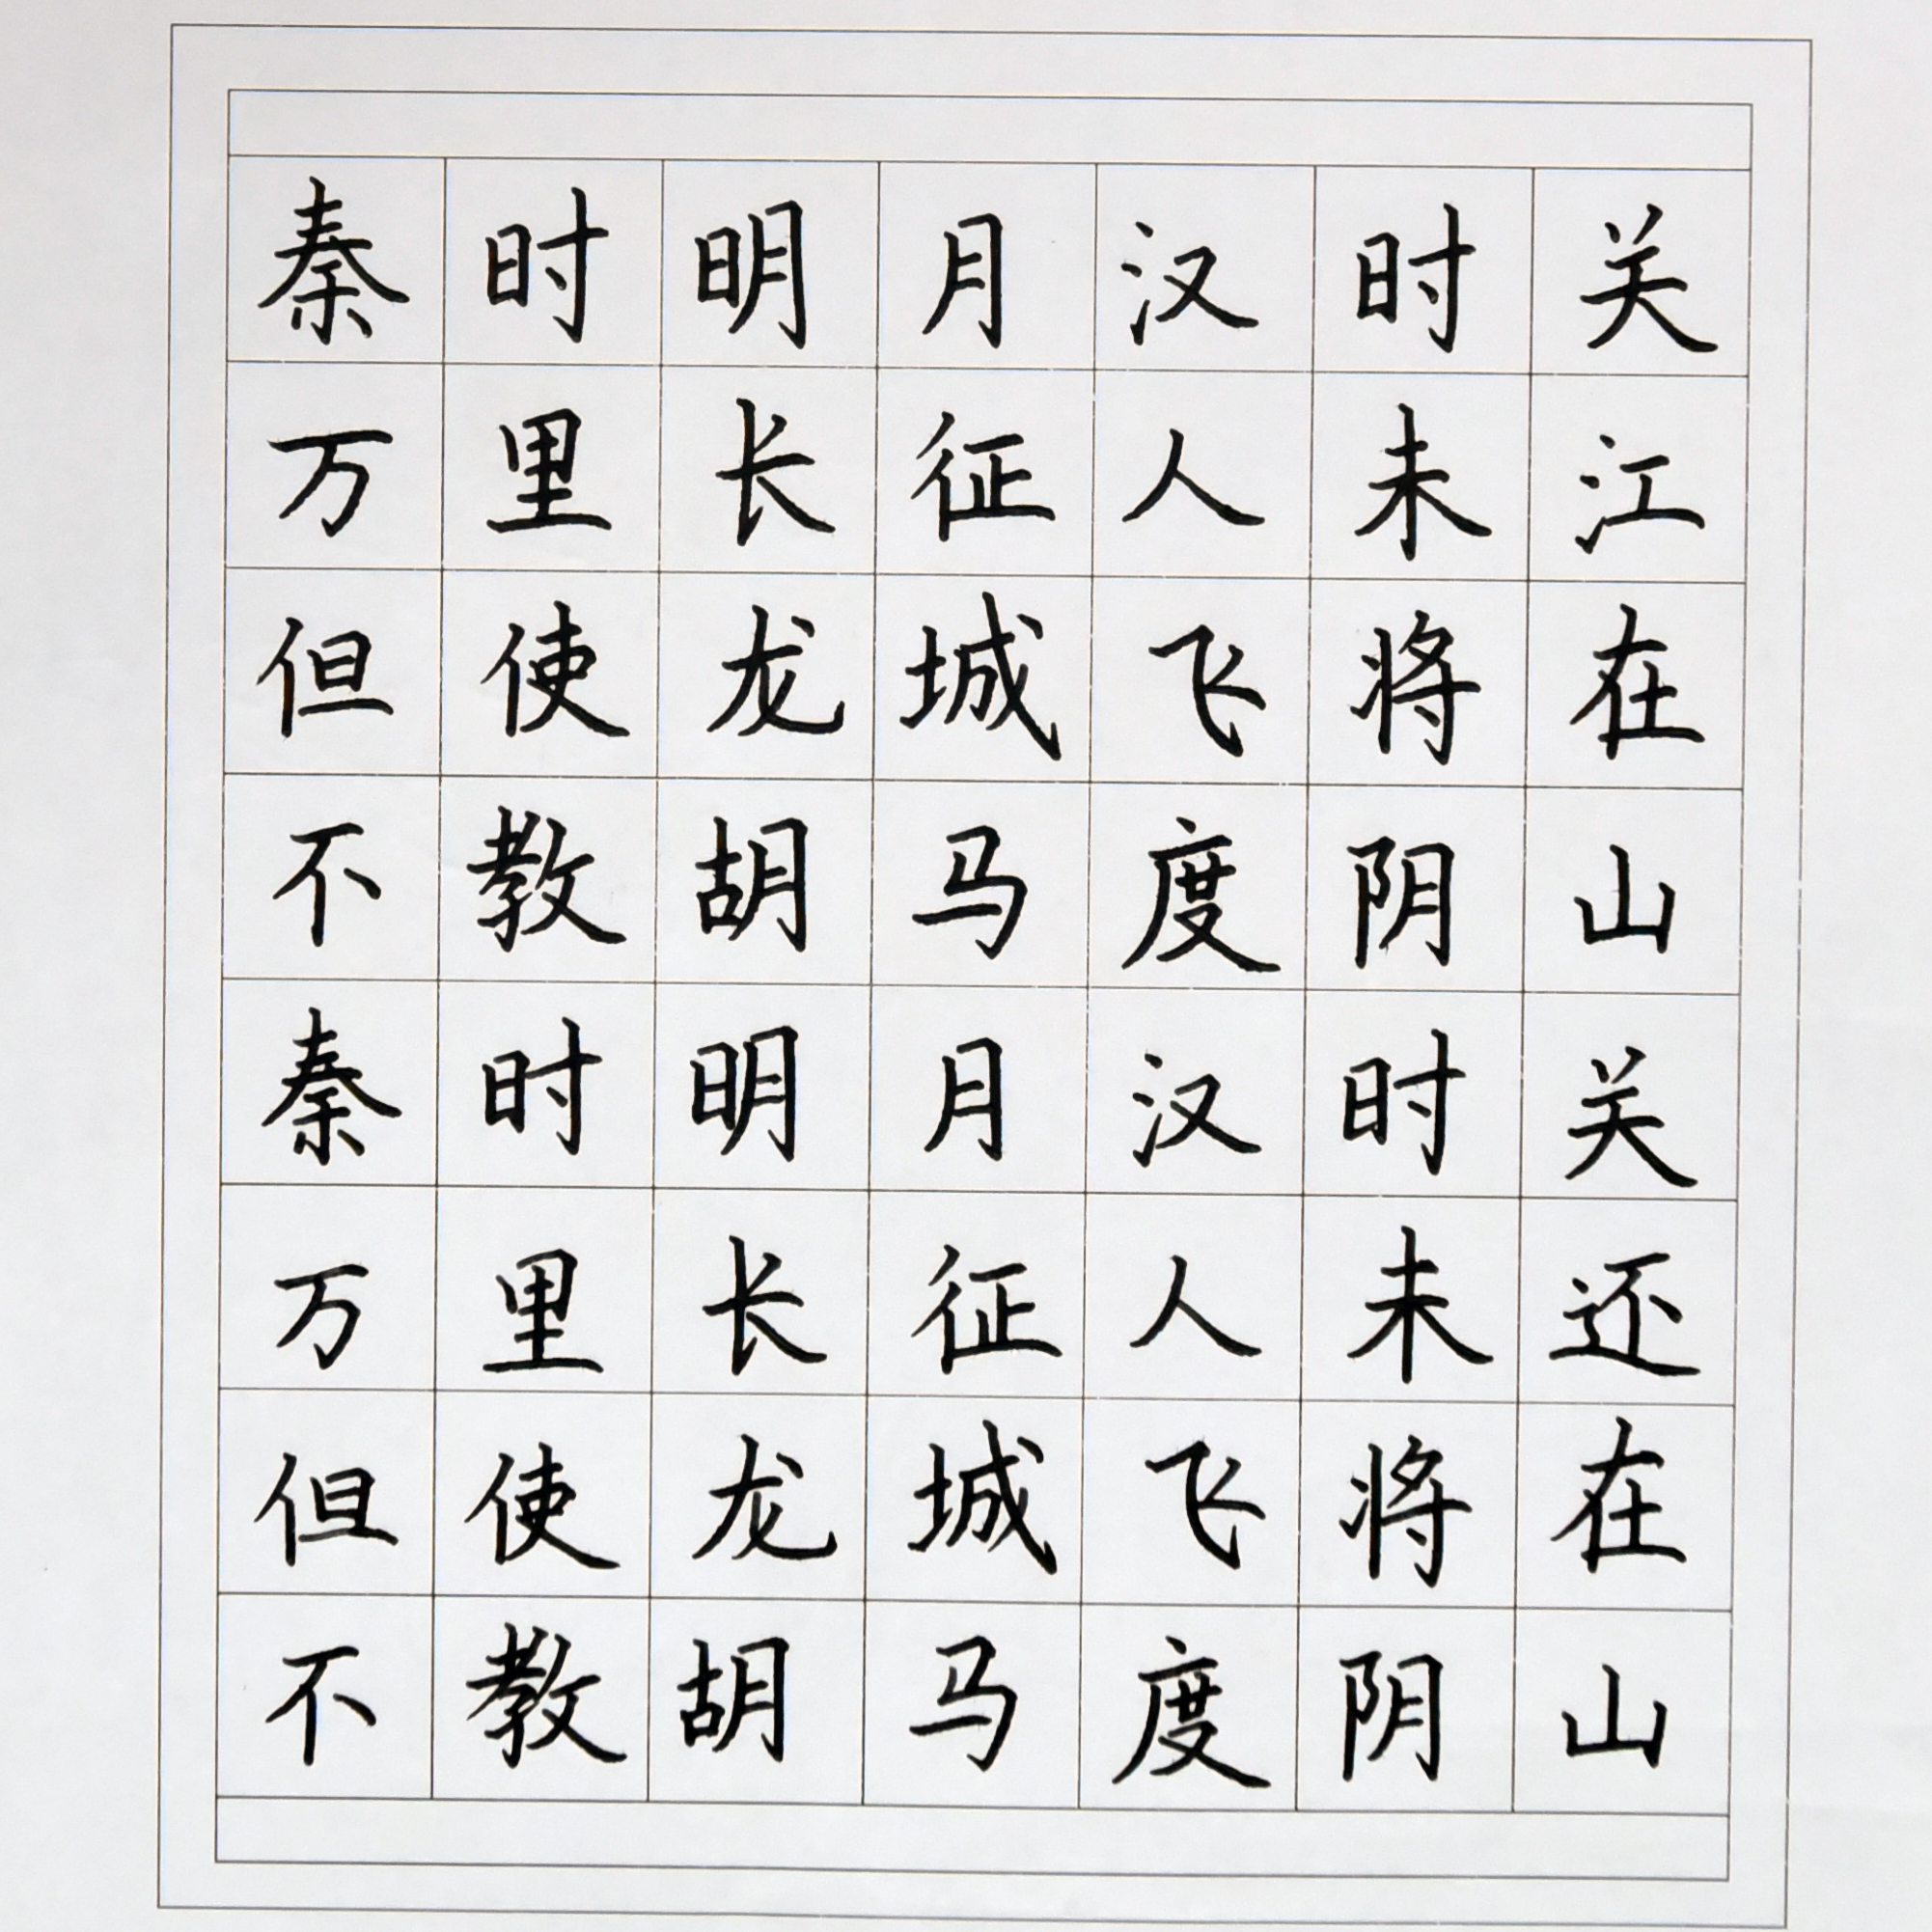 秦时明月汉时关
万里长征人未江
但使龙城飞将在
不教胡马度阴山
秦时明月汉时关
万里长征人未还
但使龙城飞将在
不教胡马度阴山